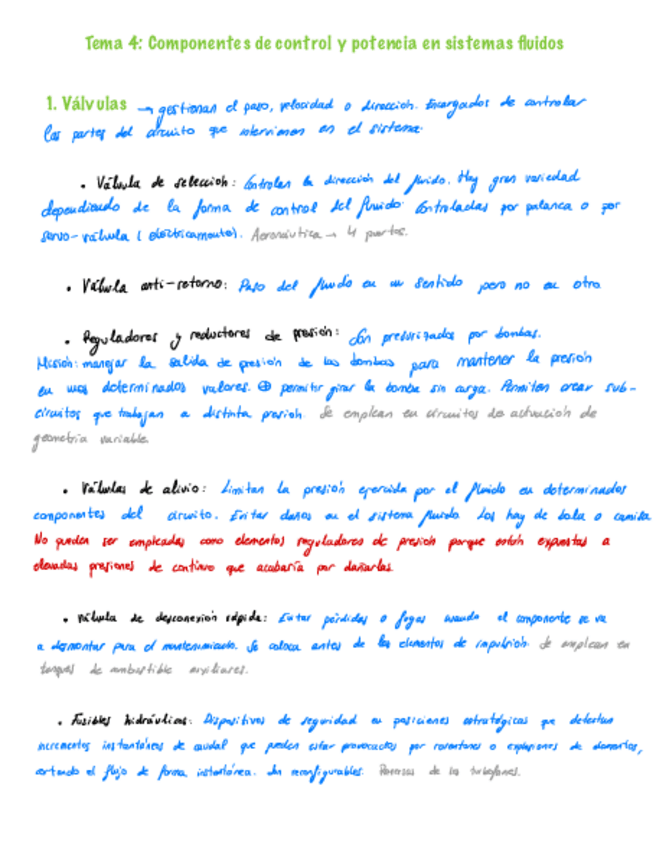 Tema 4: Componentes de control y potencia en sistemas fluidos
1. Válvulas → gestionan el paso, velocidad o dirección. Encargados de controlar
las partes del circuito que intervienen en el sistema.
• Válvula de selección: Controlan la dirección del fluido. Hay gran variedad
dependiendo de la forma de control del fluido. Controladas por palanca o por
servo-válvula (eléctricamente). Aeronáutica → 4 puertos.
• Válvula anti-retorno: Paso del fluido en un sentido pero no en otro
• Reguladores y reductores de presión: Son presurizados por bombas.
Misión: manejar la salida de presión de las bombas para mantener la presión
en unos determinados valores. ⊕ permitir girar la bomba sin carga. Permiten crear sub-
circuitos que trabajan a distinta presión. Se emplean en circuitos de actuación de
geometría variable.
• Válvulas de alivio: Limitan la presión ejercida por el fluido en determinados
componentes del circuito. Evitar daños en el sistema fluido. Los hay de bola o camisa
No pueden ser empleadas como elementos reguladores de presión porque están expuestas a
elevadas presiones de continuo que acabaría por dañarlas.
• Válvula de desconexión rápida: Evitar pérdidas o fugas cuando el componente se va
a desmontar para el mantenimiento. Se coloca antes de los elementos de impulsión. Se emplean en
tanques de combustible auxiliares.
• Fusibles hidráulicos: Dispositivos de seguridad en posiciones estratégicas que detectan
incrementos instantáneos de caudal que pueden estar provocados por o explosiones de elementos,
cortando el flujo de forma instantánea. Son reconfigurables. Reversas de los turbofanes.